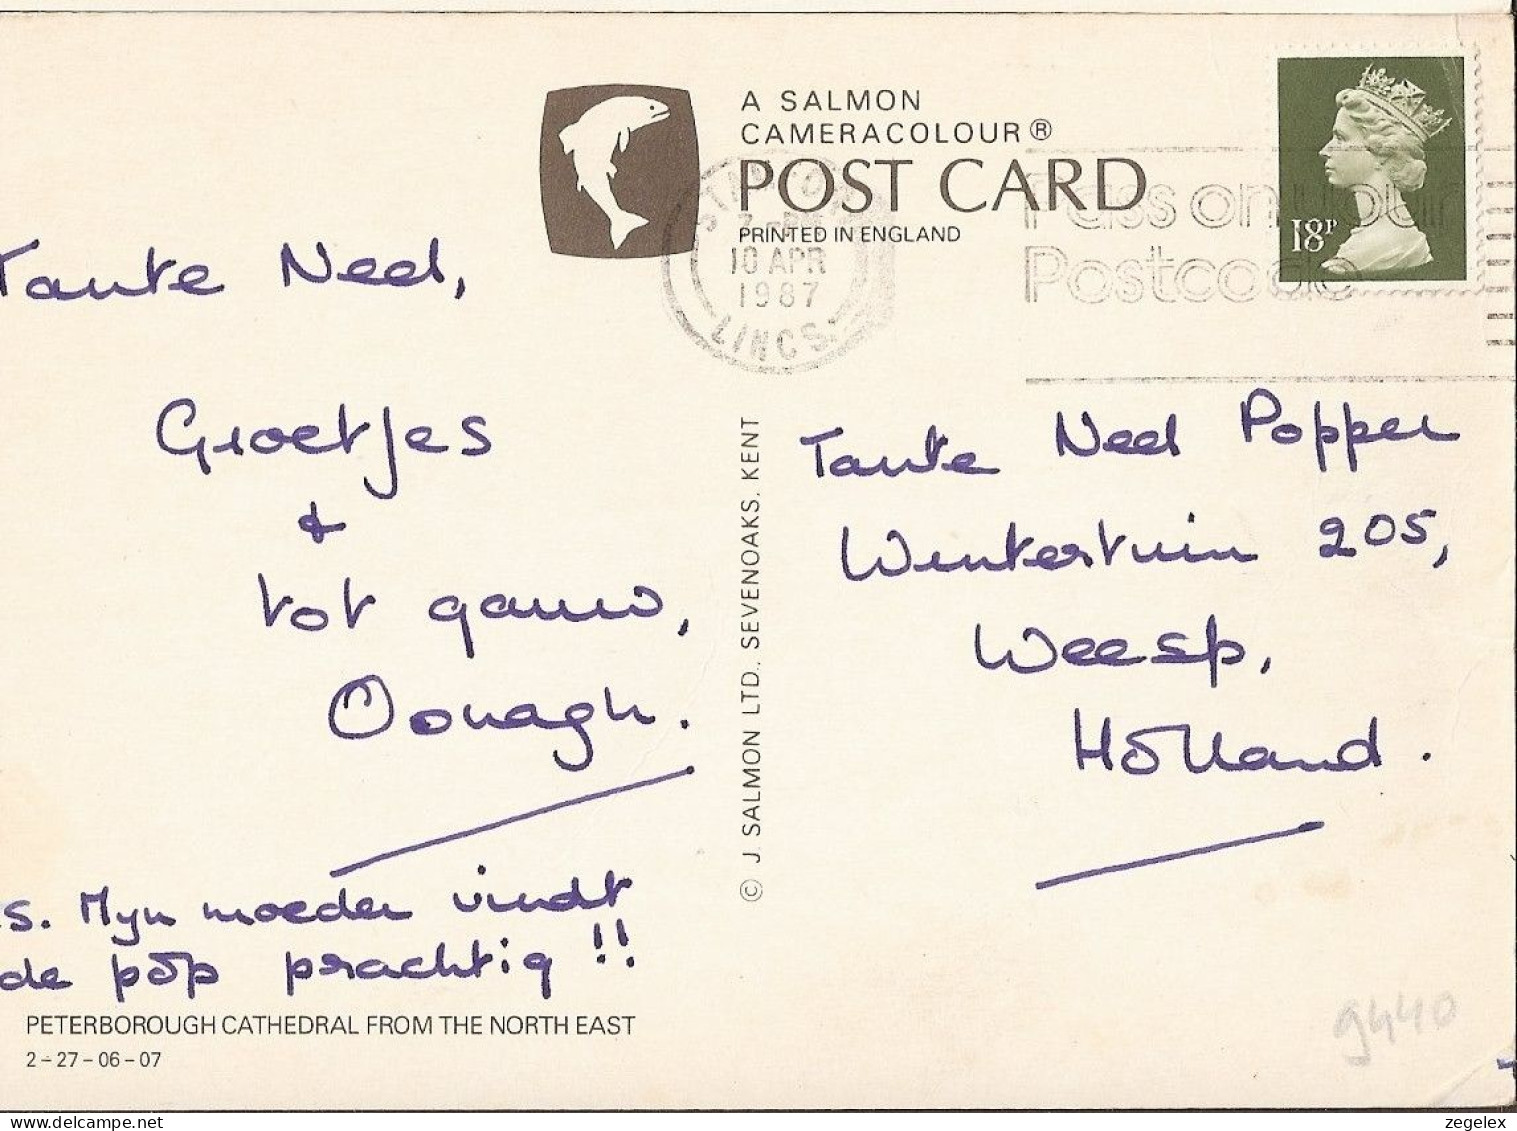 A SALMON
CAMERACOLOUR ®
POST CARD
PRINTED IN ENGLAND
10 APR
1987
LINCS.
Pass on your
Postcode
18P
Tante Neel,
Groetjes
&
tot gauw,
Oonagh.
.s. Mijn moeder vindt
de pop prachtig!!
PETERBOROUGH CATHEDRAL FROM THE NORTH EAST
2-27-06-07
© J. SALMON LTD., SEVENOAKS. KENT
Tante Neel Popper
Wintertuin 205,
Weesp,
Holland.
9440
zegelex